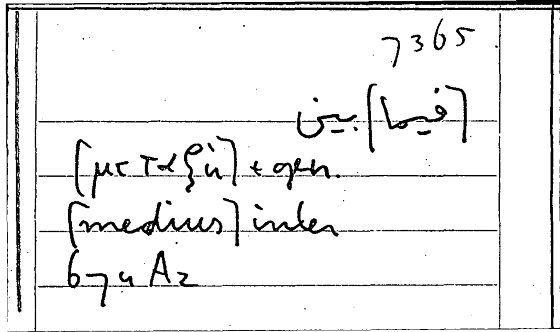 7365
[فيما] بين
[μεταξὺ] + gen.
[medius] inter